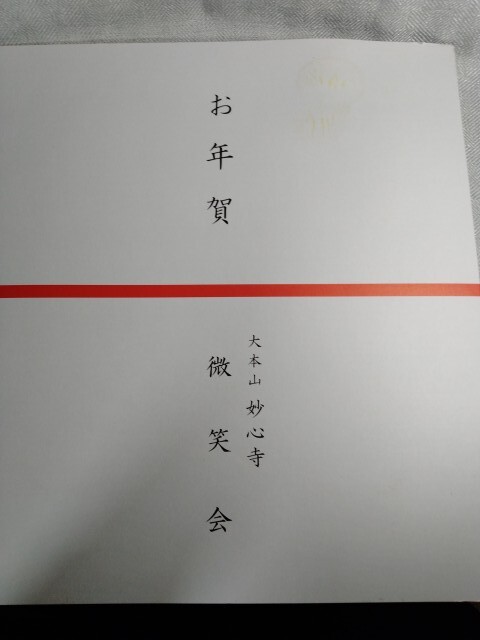 お年賀
大本山 妙心寺
微笑会